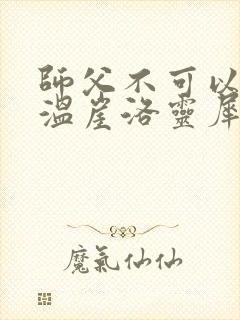 師父不可以
溫崖洛靈犀
魔氣仙仙